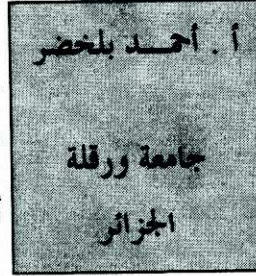 أ . أحمـد بلخضر
جامعة ورقلة
الجزائر